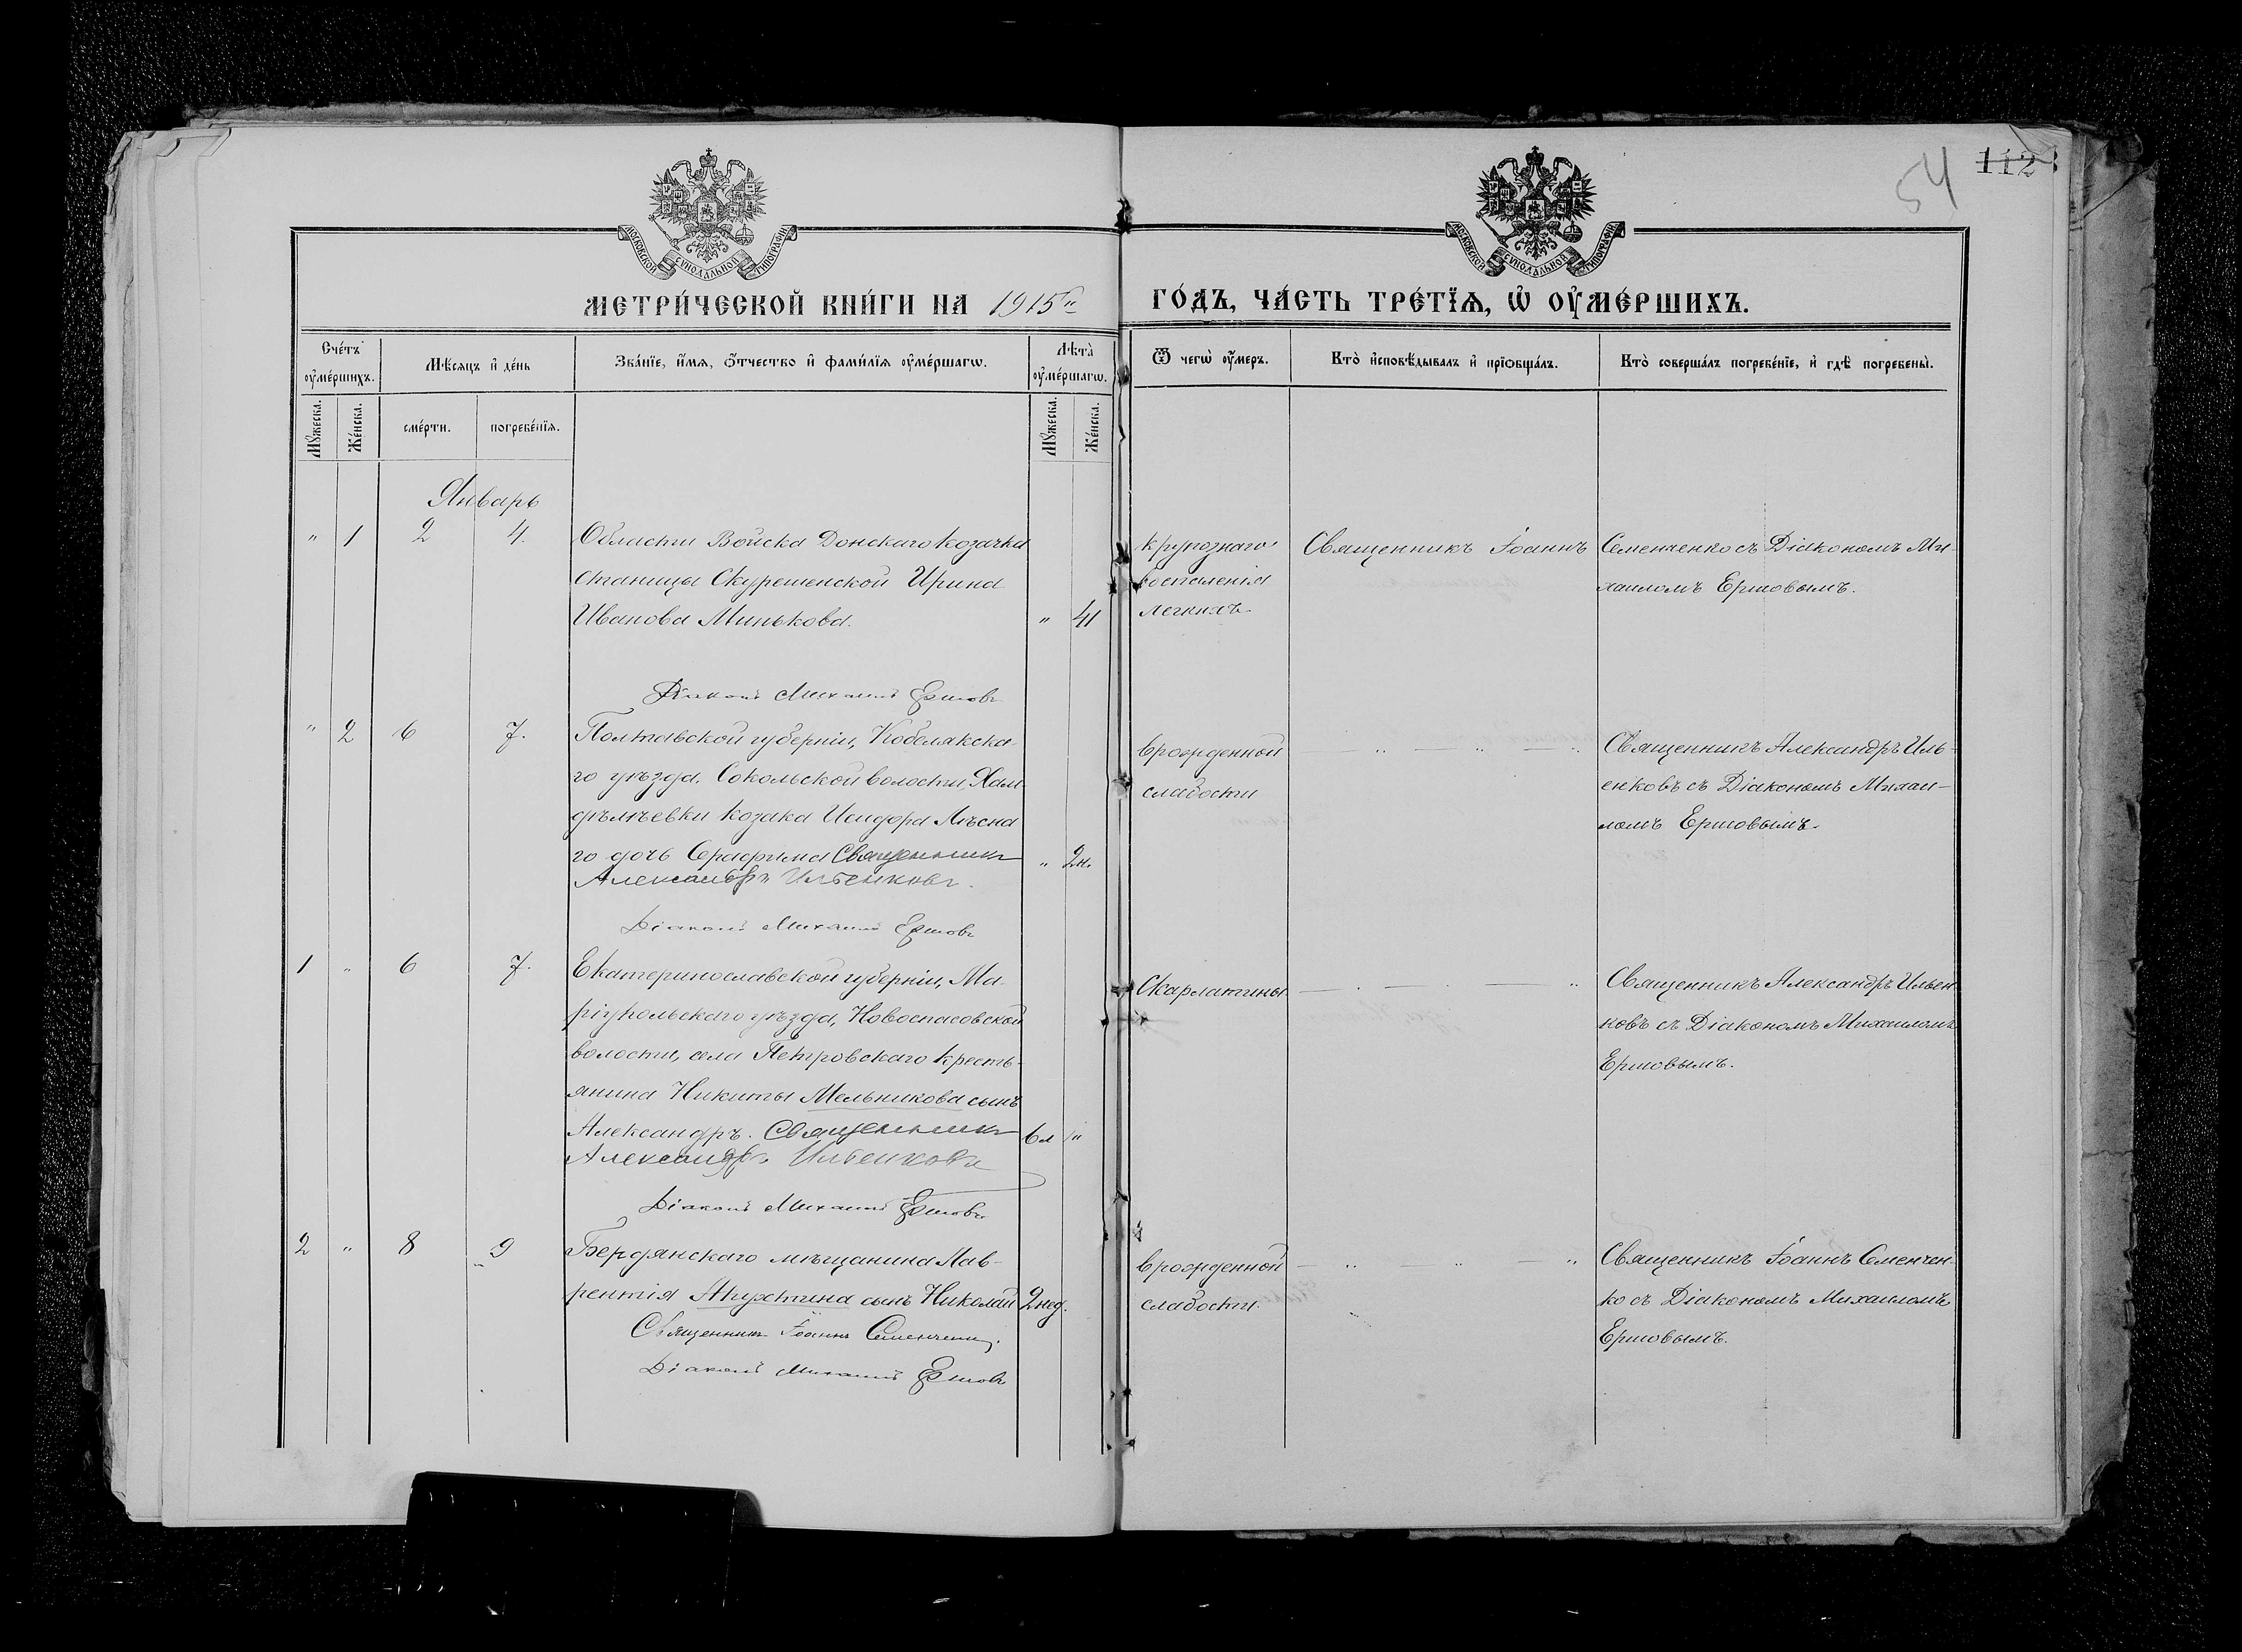 54
112
МОСКОВСКОЙ СѴНОДАЛЬНОЙ ТИПОГРАФІИ
МОСКОВСКОЙ СѴНОДАЛЬНОЙ ТИПОГРАФІИ
МЕТРИ́ЧЕСКОЙ КНИ́ГИ НА 1915й ГО́ДЪ, ЧА́СТЬ ТРЕ́ТЇѦ, Ѡ҆ ОУ҆МЕ́РШИХЪ.
Сче́тъ оу҆ме́ршихъ.
Мꙋ́жеска.
Же́нска.
Мѣ́сѧцъ и҆ де́нь
сме́рти.
погребе́нїѧ.
Зва́нїе, и҆́мѧ, ѻ҆́тчество и҆ фами́лїѧ оу҆ме́ршагѡ.
Лѣ́та оу҆ме́ршагѡ.
Мꙋ́жеска.
Же́нска.
Ѿ чегѡ̀ оу҆́меръ.
Кто̀ и҆сповѣ́дывалъ и҆ прїѡбща́лъ.
Кто̀ соверша́лъ погребе́нїе, и҆ гдѣ̀ погребены̀.
Январь
" 1 2 4.
Области Войска Донскаго козачка
станицы Скуришенской Ирина
Иванова Минькова.
" 41
крупознаго
воспаленія
легкихъ
Священникъ Іоаннъ
Семенченко съ Діакономъ Ми-
хаиломъ Ершовымъ.
Діаконъ Михаилъ Ершовъ
" 2 6 7.
Полтавской губерніи, Кобелякска-
го уѣзда, Сокольской волости,
козака Исидора Лѣсна
го дочь Серафима Священникъ
Александръ Ильенковъ.
" 2 н.
врожденной
слабости
— " — " — "
Священникъ Александръ Иль-
енковъ съ Діакономъ Михаи-
ломъ Ершовымъ.
Діаконъ Михаилъ Ершовъ
1 " 6 7.
Екатеринославской губерніи, Ма-
ріупольскаго уѣзда, Новоспасовской
волости, села Петровскаго кресть-
янина Никиты Мельникова сынъ
Александръ. Священникъ
Александръ Ильенковъ
6 л "
Скарлатины
— " — " — "
Священникъ Александръ Ильен
ковъ съ Діакономъ Михаиломъ
Ершовымъ.
Діаконъ Михаилъ Ершовъ
2 " 8 9
Бердянскаго мѣщанина Лав-
рентія Апухтина сынъ Николай
2 нед.
врожденной
слабости.
— " — " — "
Священникъ Іоаннъ Семенчен-
ко съ Діакономъ Михаиломъ
Ершовымъ.
Священникъ Іоаннъ Семенченко.
Діаконъ Михаилъ Ершовъ